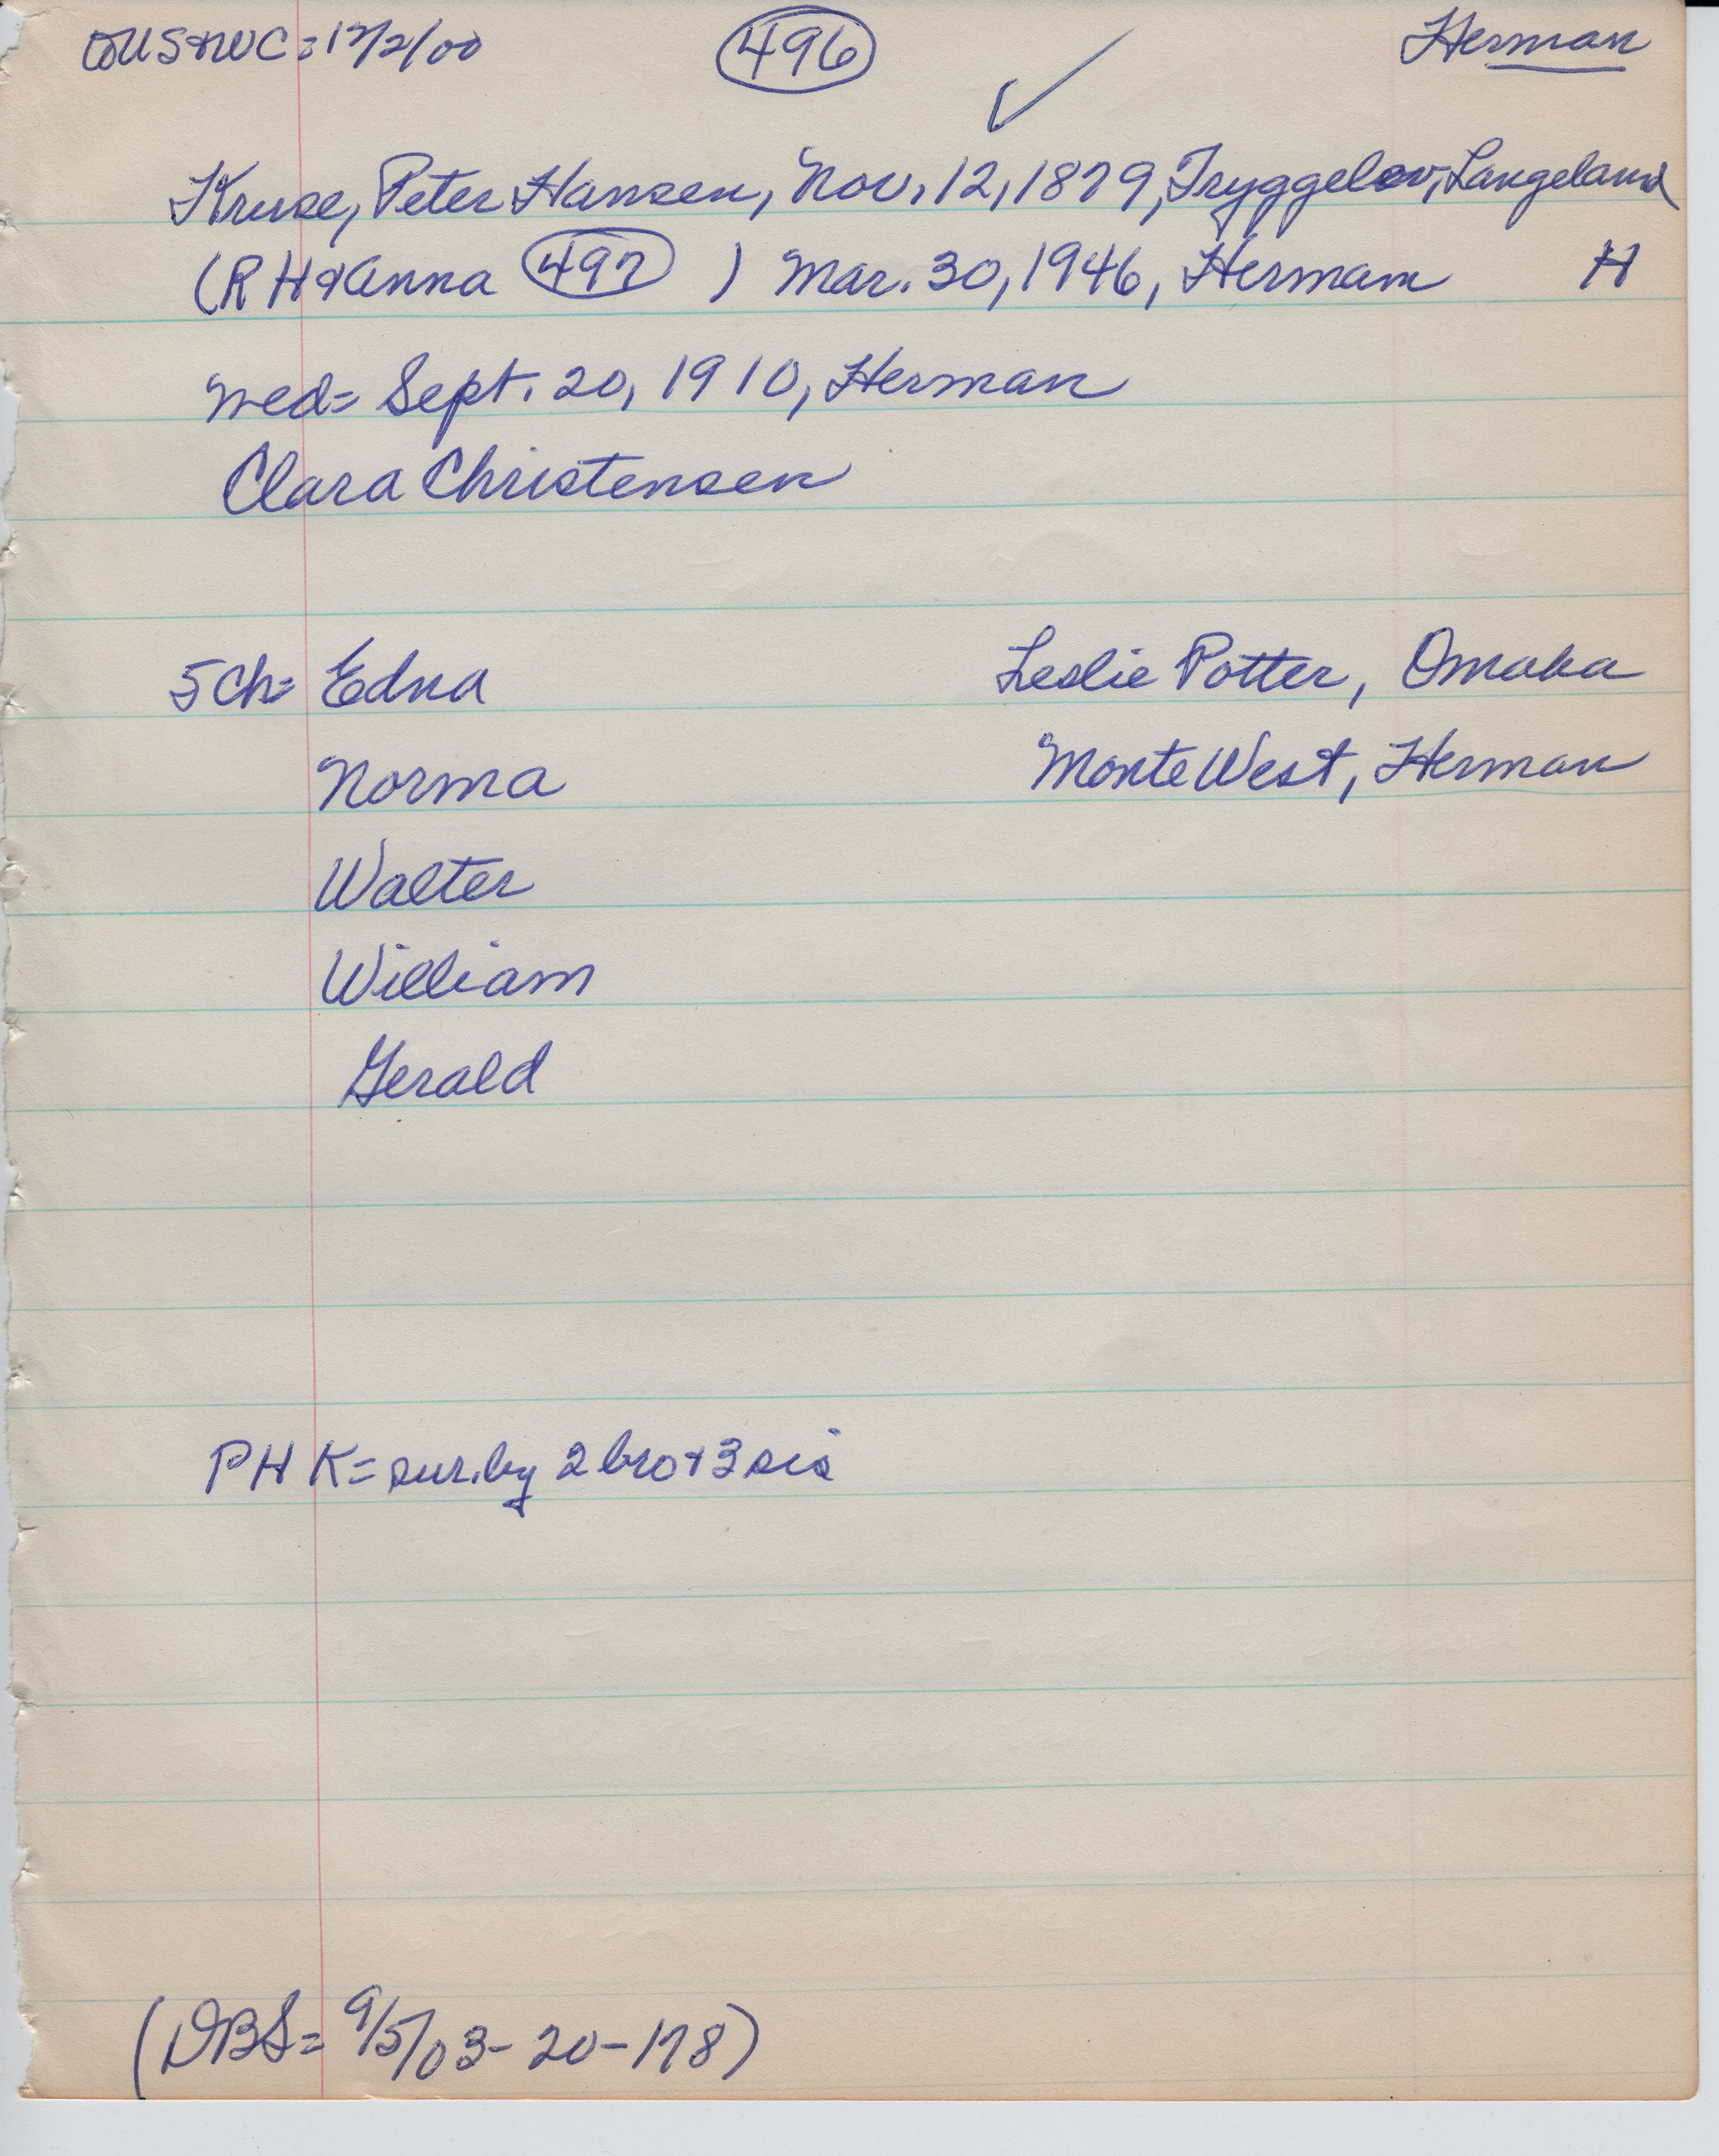 = 12/2/00 496 Herman
✓
Kruse, Peter Hansen, Nov. 12, 1879, Tryggelev, Langeland
(R H & Anna 497 ) Mar. 30, 1946, Herman H
wed = Sept. 20, 1910, Herman
Clara Christensen
5 Ch = Edna Leslie Potter, Omaha
Norma Monte West, Herman
Walter
William
Gerald
P H K = sur. by 2 bro + 3 sis
(DBS = 9/5/03 - 20 - 178)